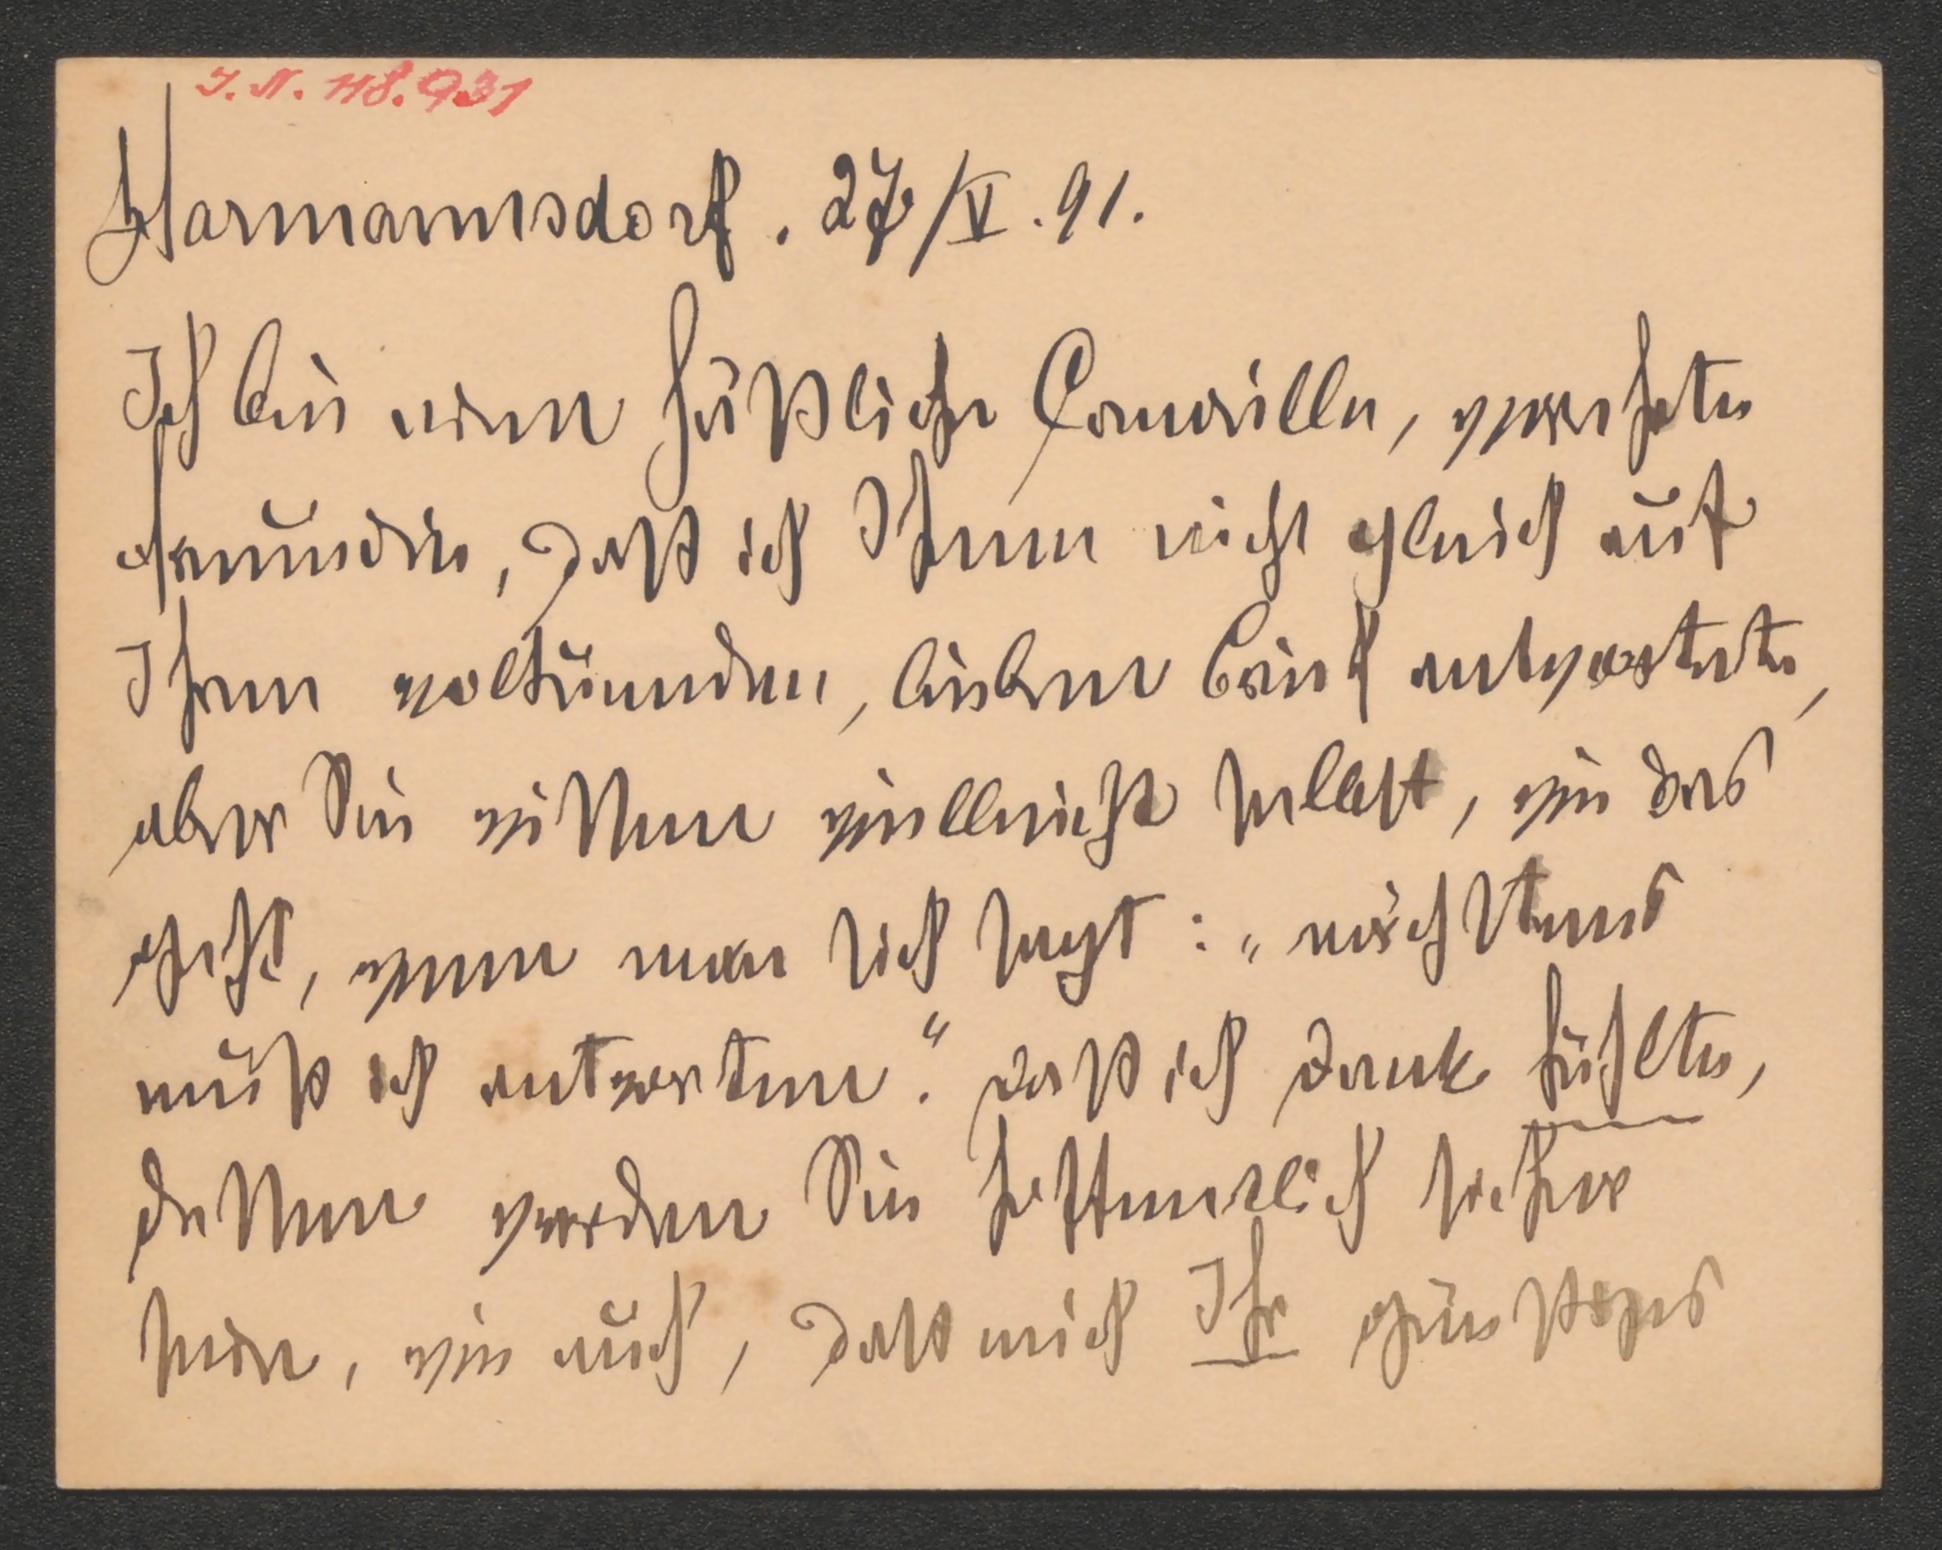 I. N. 118.931
Harmannsdorf. 27/V. 91.
Ich bin eine häßliche Canaille, verehrte
Freundin, daß ich Ihnen nicht gleich auf
Ihren wohltuenden, lieben Brief antwortete,
aber Sie wissen vielleicht selbst, wie das
geht, wenn man sich sagt: „nächstens
muß ich antworten." Daß ich Dank fühlte,
dessen werden Sie hoffentlich sicher
sein, wie auch, daß mich Ihr